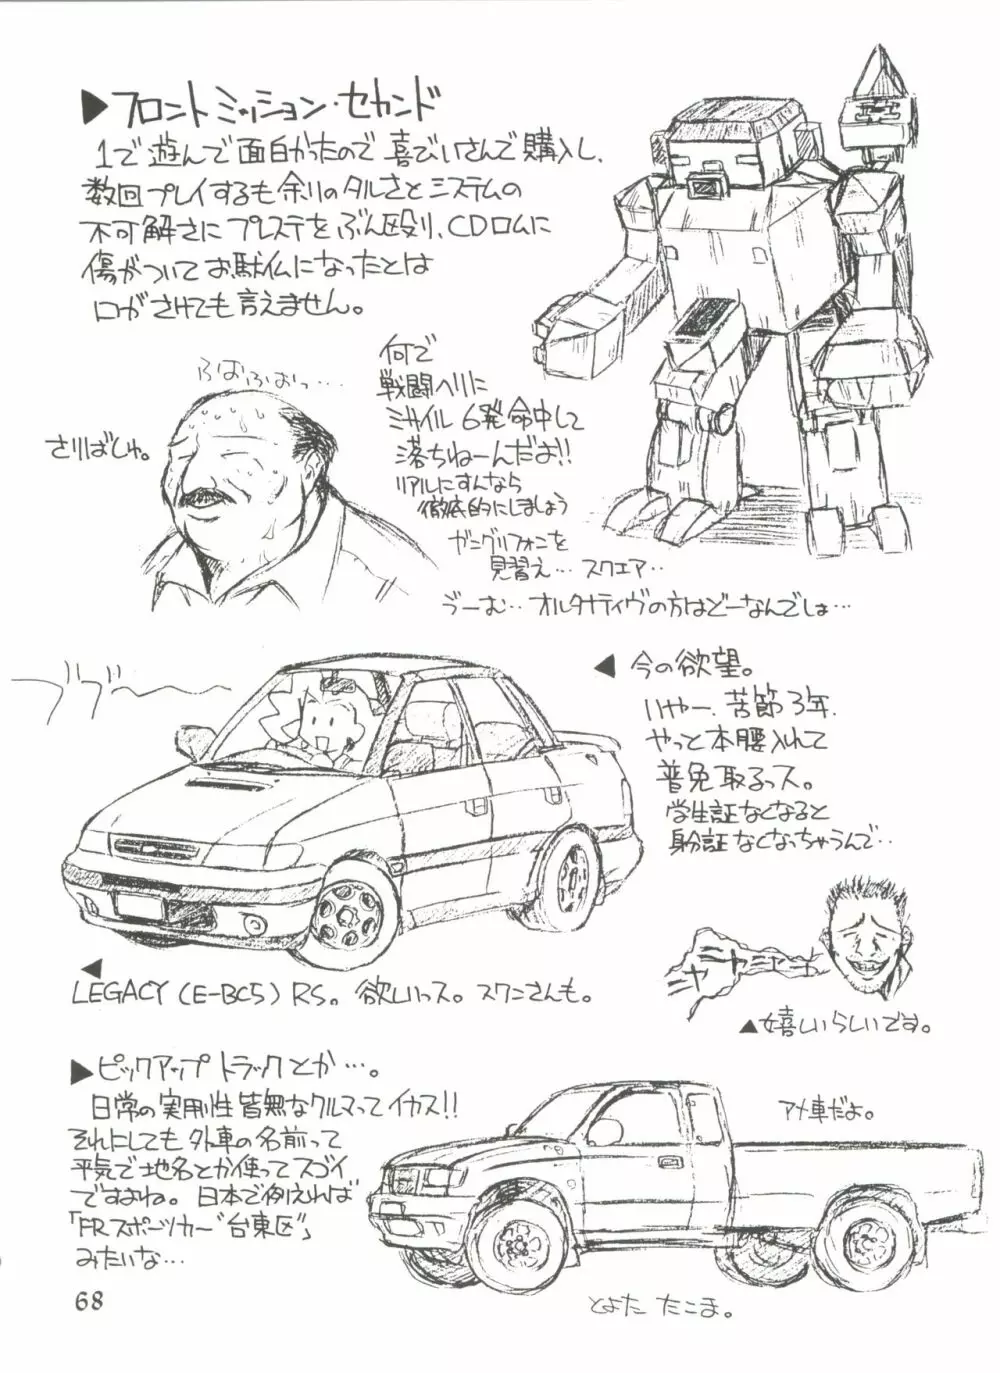 ▶フロントミッション・セカンド
1で遊んで面白かったので喜びいさんで購入し、
数回プレイするも余りのタルさとシステムの
不可解さにプレステをぶん殴り、CDロムに
傷がついてお駄仏になったとは
口がさけても言えません。
ふおふおっ…
さりばしゅ。
何で
戦闘ヘリに
ミサイル6発命中して
落ちねーんだよ!!
リアルにすんなら
徹底的にしましょう
ガングリフォンを
見習え…スクエア‥
ゔーむ…オルタナティヴの方はどーなんでしょ…
ブブ〜〜
◀今の欲望。
いやー、苦節3年、
やっと本腰入れて
普免取るっス。
学生証なくなると
身分証なくなっちゃうんで‥
◀
LEGACY (E-BC5) RS。欲しいっス。スワニさんも。
▲嬉しいらしいです。
▶ピックアップトラックとか…。
日常の実用性皆無なクルマってイカス!!
それにしても外車の名前って
平気で地名とか使ってスゴイ
ですよね。日本で例えれば
「FRスポーツカー“台東区”」
みたいな…
アメ車だよ。
とよた たこま。
68